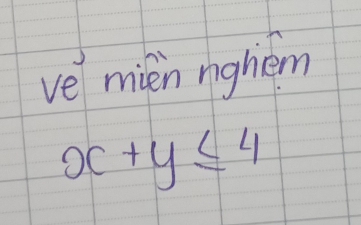 vẻ miền nghiệm
x + y ≤ 4